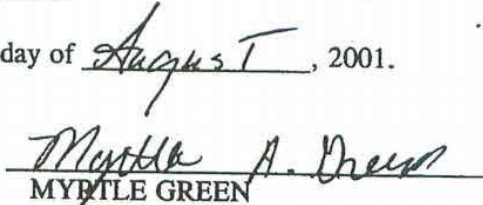 day of August, 2001.
Myrtle A. Green
MYRTLE GREEN